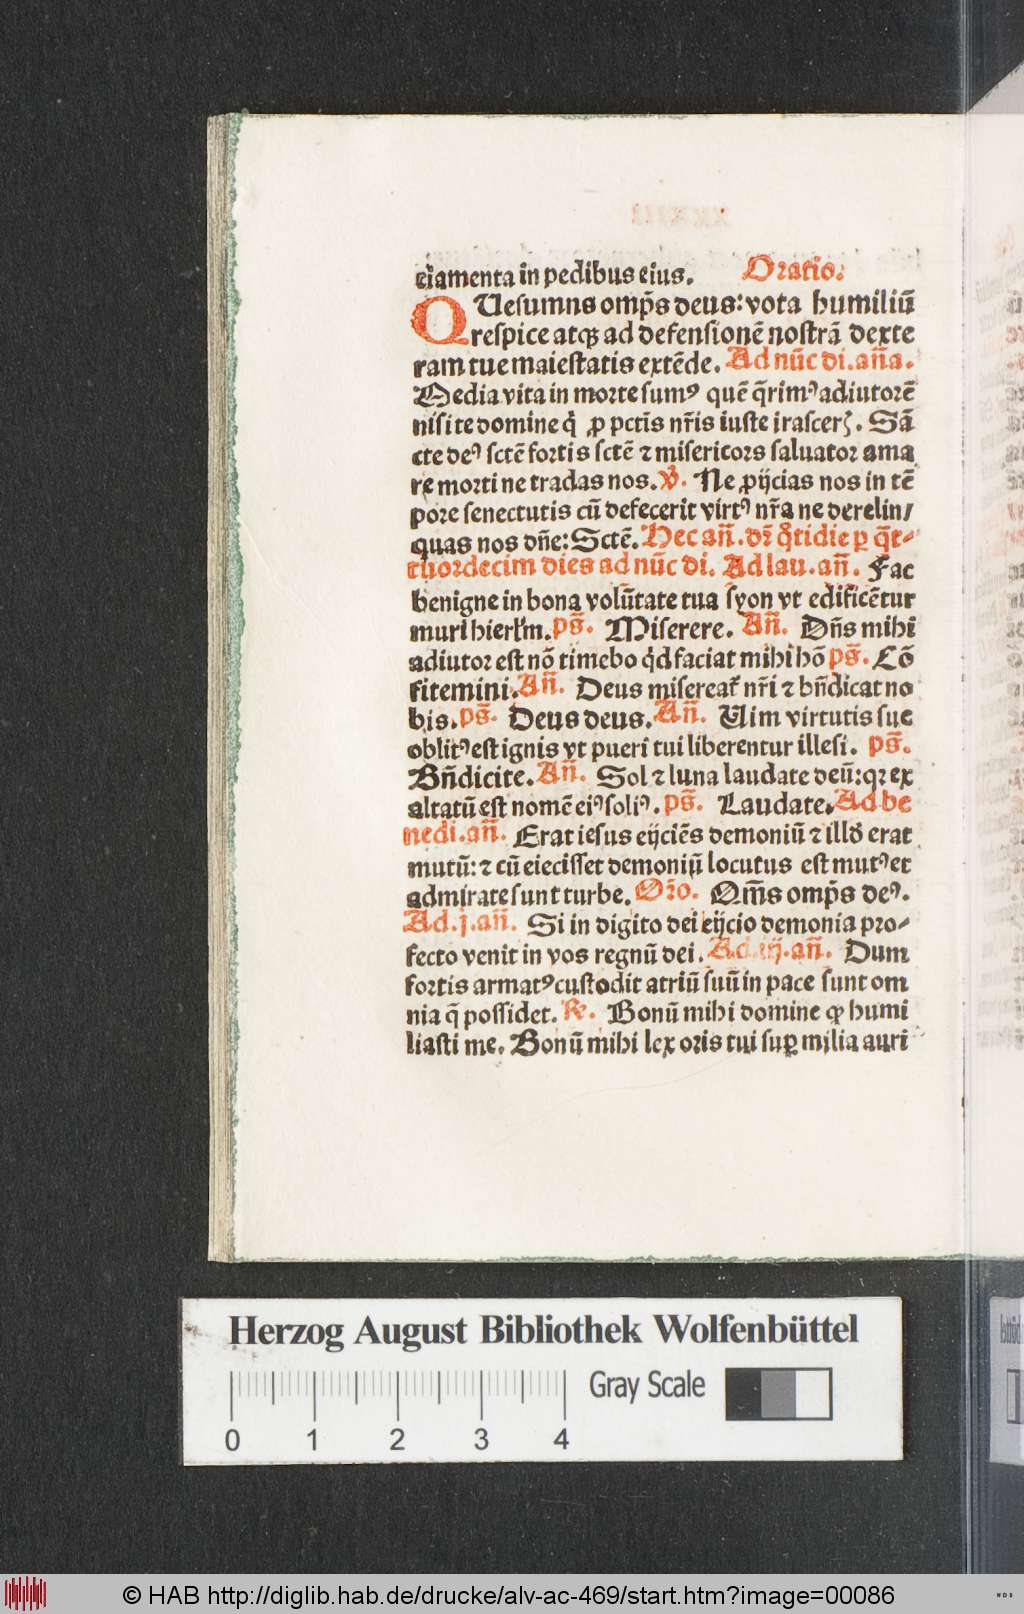 ciamenta in pedibus eius. Oratio.
QUesumns omp̄s deus: vota humiliū
respice atqꝫ ad defensionē nostrā dexte
ram tue maiestatis extēde. Ad nūc di. an̄a.
Media vita in morte sumꝰ quē q̄rimꝰ adiutorē
nisi te domine q̇ ꝓ pctīs nr̄is iuste irascerꝭ. Sā
cte deꝰ sctē fortis sctē ⁊ misericors saluator ama
re morti ne tradas nos. v̄. Ne ꝓijcias nos in tē
pore senectutis cū defecerit virtꝰ nr̄a ne derelin/
quas nos dn̄e: Sctē. Hec an̄. dr̄ q̄tidie ꝑ q̄t-
tuordecim dies ad nūc di. Ad lau. an̄. Fac
benigne in bona volūtate tua syon vt edificētur
muri hierl̄m. ps̄. Miserere. An̄. Dn̄s mihi
adiutor est nō timebo q̇d faciat mihi hō ps̄. Cō
fitemini. An̄. Deus misereat̄ nr̄i ⁊ bn̄dicat no
bis. ps̄. Deus deus. An̄. Uim virtutis sue
oblitꝰ est ignis vt pueri tui liberentur illesi. ps̄.
Bn̄dicite. An̄. Sol ⁊ luna laudate deū: qꝛ ex
altatū est nomē eiꝰ soliꝰ. ps̄. Laudate. Ad be
nedi. an̄. Erat iesus eijciēs demoniū ⁊ illd̓ erat
mutū: ⁊ cū eiecisset demoniū locutus est mutꝰ et
admirate sunt turbe. Or̄o. Om̄s omp̄s deꝰ.
Ad. j. an̄. Si in digito dei eijcio demonia pro-
fecto venit in vos regnū dei. Ad. iij. an̄. Dum
fortis armatꝰ custodit atriū suū in pace sunt om
nia q̄ possidet. ℟. Bonū mihi domine ꝙ humi
liasti me. Bonū mihi lex oris tui suꝑ milia auri
Herzog August Bibliothek Wolfenbüttel
Gray Scale
0 1 2 3 4
© HAB http://diglib.hab.de/drucke/alv-ac-469/start.htm?image=00086